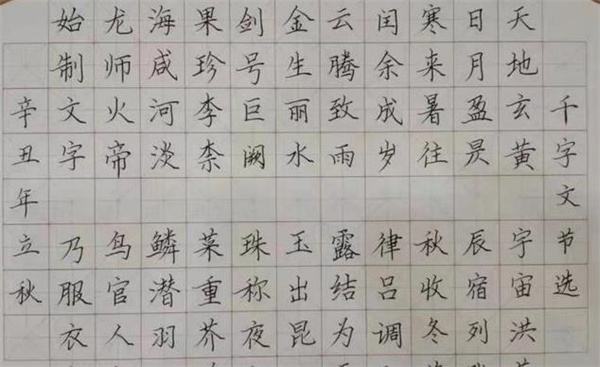 千字文节选
天地玄黄宇宙洪
日月盈昃辰宿列
寒来暑往秋收冬
闰余成岁律吕调
云腾致雨露结为
金生丽水玉出昆
剑号巨阙珠称夜
果珍李柰菜重芥
海咸河淡鳞潜羽
龙师火帝鸟官人
始制文字乃服衣
辛丑年立秋